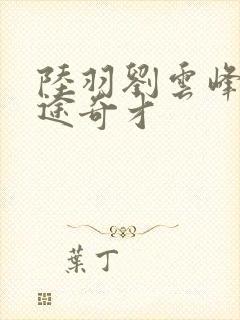 陸羽劉雲峰
途奇才
葉丁